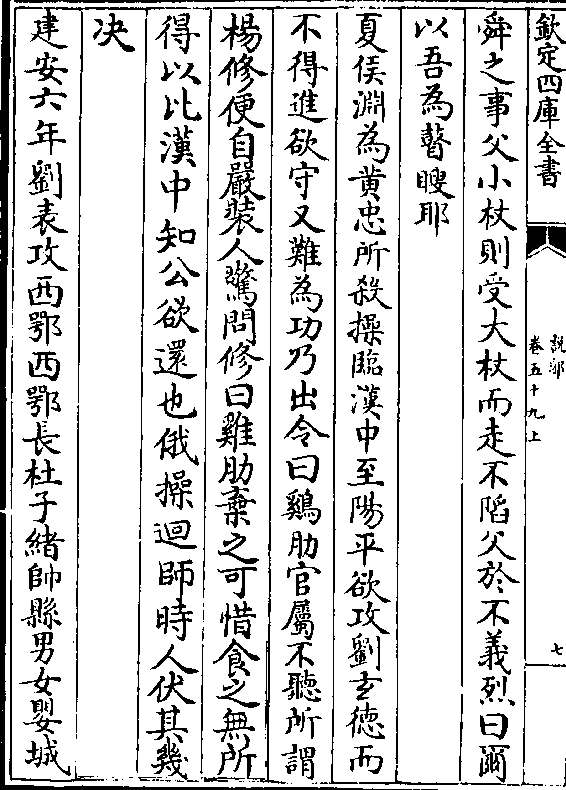 欽定四庫全書
說郛
卷五十九上
七
舜之事父小杖則受大杖而走不陷父於不義烈曰爾
以吾為瞽瞍耶
夏侯淵為黃忠所殺操臨漢中至陽平欲攻劉玄德而
不得進欲守又難為功乃出令曰鷄肋官屬不聽所謂
楊修便自嚴裝人驚問修曰雞肋棄之可惜食之無所
得以比漢中知公欲還也俄操迴師時人伏其幾
决
建安六年劉表攻西鄂西鄂長杜子緒帥縣男女嬰城